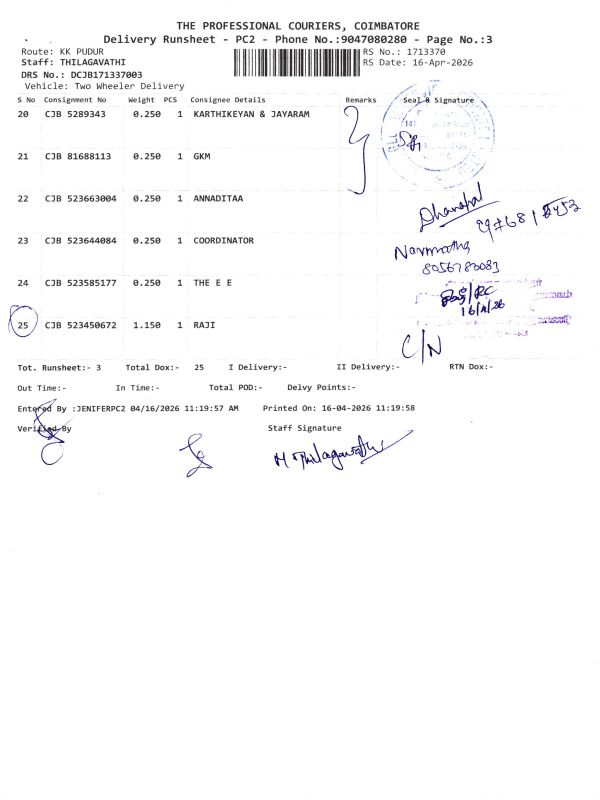 THE PROFESSIONAL COURIERS, COIMBATORE
Delivery Runsheet - PC2 - Phone No.:9047080280 - Page No.:3
Route: KK PUDUR RS No.: 1713370
Staff: THILAGAVATHI RS Date: 16-Apr-2026
DRS No.: DCJB171337003
Vehicle: Two Wheeler Delivery
S No Consignment No Weight PCS Consignee Details Remarks Seal & Signature
20 CJB 5289343 0.250 1 KARTHIKEYAN & JAYARAM
21 CJB 81688113 0.250 1 GKM
22 CJB 523663004 0.250 1 ANNADITAA
Dhanapal
23 CJB 523644084 0.250 1 COORDINATOR
Narmatha
8056780083
24 CJB 523585177 0.250 1 THE E E
16/4/26
25 CJB 523450672 1.150 1 RAJI
C/N
Tot. Runsheet:- 3 Total Dox:- 25 I Delivery:- II Delivery:- RTN Dox:-
Out Time:- In Time:- Total POD:- Delvy Points:-
Entered By :JENIFERPC2 04/16/2026 11:19:57 AM Printed On: 16-04-2026 11:19:58
Verified By Staff Signature
M Thilagavathi